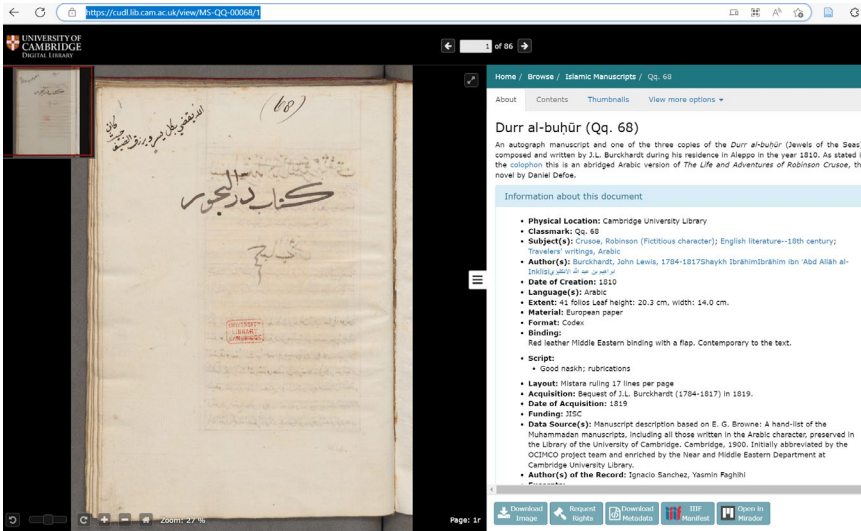 https://cudl.lib.cam.ac.uk/view/MS-QQ-00068/1
UNIVERSITY OF
CAMBRIDGE
DIGITAL LIBRARY
1 of 86
(68)
كتاب در البحور
UNIVERSITY
LIBRARY
CAMBRIDGE
Zoom: 27 %
Page: 1r
Home / Browse / Islamic Manuscripts / Qq. 68
About Contents Thumbnails View more options
Durr al-buḥūr (Qq. 68)
An autograph manuscript and one of the three copies of the Durr al-buḥūr (Jewels of the Seas)
composed and written by J.L. Burckhardt during his residence in Aleppo in the year 1810. As stated
the colophon this is an abridged Arabic version of The Life and Adventures of Robinson Crusoe, th
novel by Daniel Defoe.
Information about this document
Physical Location: Cambridge University Library
Classmark: Qq. 68
Subject(s): Crusoe, Robinson (Fictitious character); English literature--18th century;
Travelers' writings, Arabic
Author(s): Burckhardt, John Lewis, 1784-1817Shaykh IbrāhīmIbrāhīm ibn 'Abd Allāh al-
Inklīsī
Date of Creation: 1810
Language(s): Arabic
Extent: 41 folios Leaf height: 20.3 cm, width: 14.0 cm.
Material: European paper
Format: Codex
Binding:
Red leather Middle Eastern binding with a flap. Contemporary to the text.
Script:
Good naskh; rubrications
Layout: Mistara ruling 17 lines per page
Acquisition: Bequest of J.L. Burckhardt (1784-1817) in 1819.
Date of Acquisition: 1819
Funding: JISC
Data Source(s): Manuscript description based on E. G. Browne: A hand-list of the
Muhammadan manuscripts, including all those written in the Arabic character, preserved in
the Library of the University of Cambridge. Cambridge, 1900. Initially abbreviated by the
OCIMCO project team and enriched by the Near and Middle Eastern Department at
Cambridge University Library.
Author(s) of the Record: Ignacio Sanchez, Yasmin Faghihi
Download
Image
Request
Rights
Download
Metadata
IIIF
Manifest
Open in
Mirador